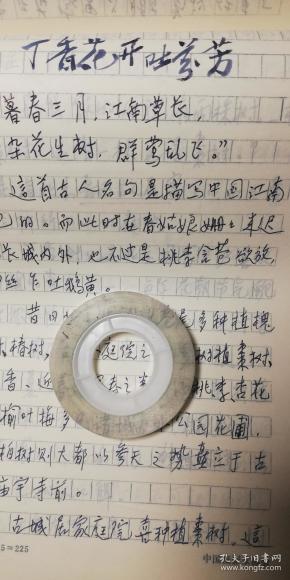 丁香花开吐芬芳
暮春三月,江南草长,
杂花生树,群莺乱飞。”
这首古人名句是描写中国江南
的。而此时在春姑娘姗姗来迟
长城内外,也不过是桃李含苞欲放,
丝乍吐鹅黄。
昔日 多种植槐
椿树, 庭院之 树植枣树,
香、近 桃李杏花
榆叶梅多 公园花圃,
柏树则大都以参天之势矗立于古
庙宇寺前。
古城居家庭院喜种植枣树。这
5=225
中国
孔夫子旧书网